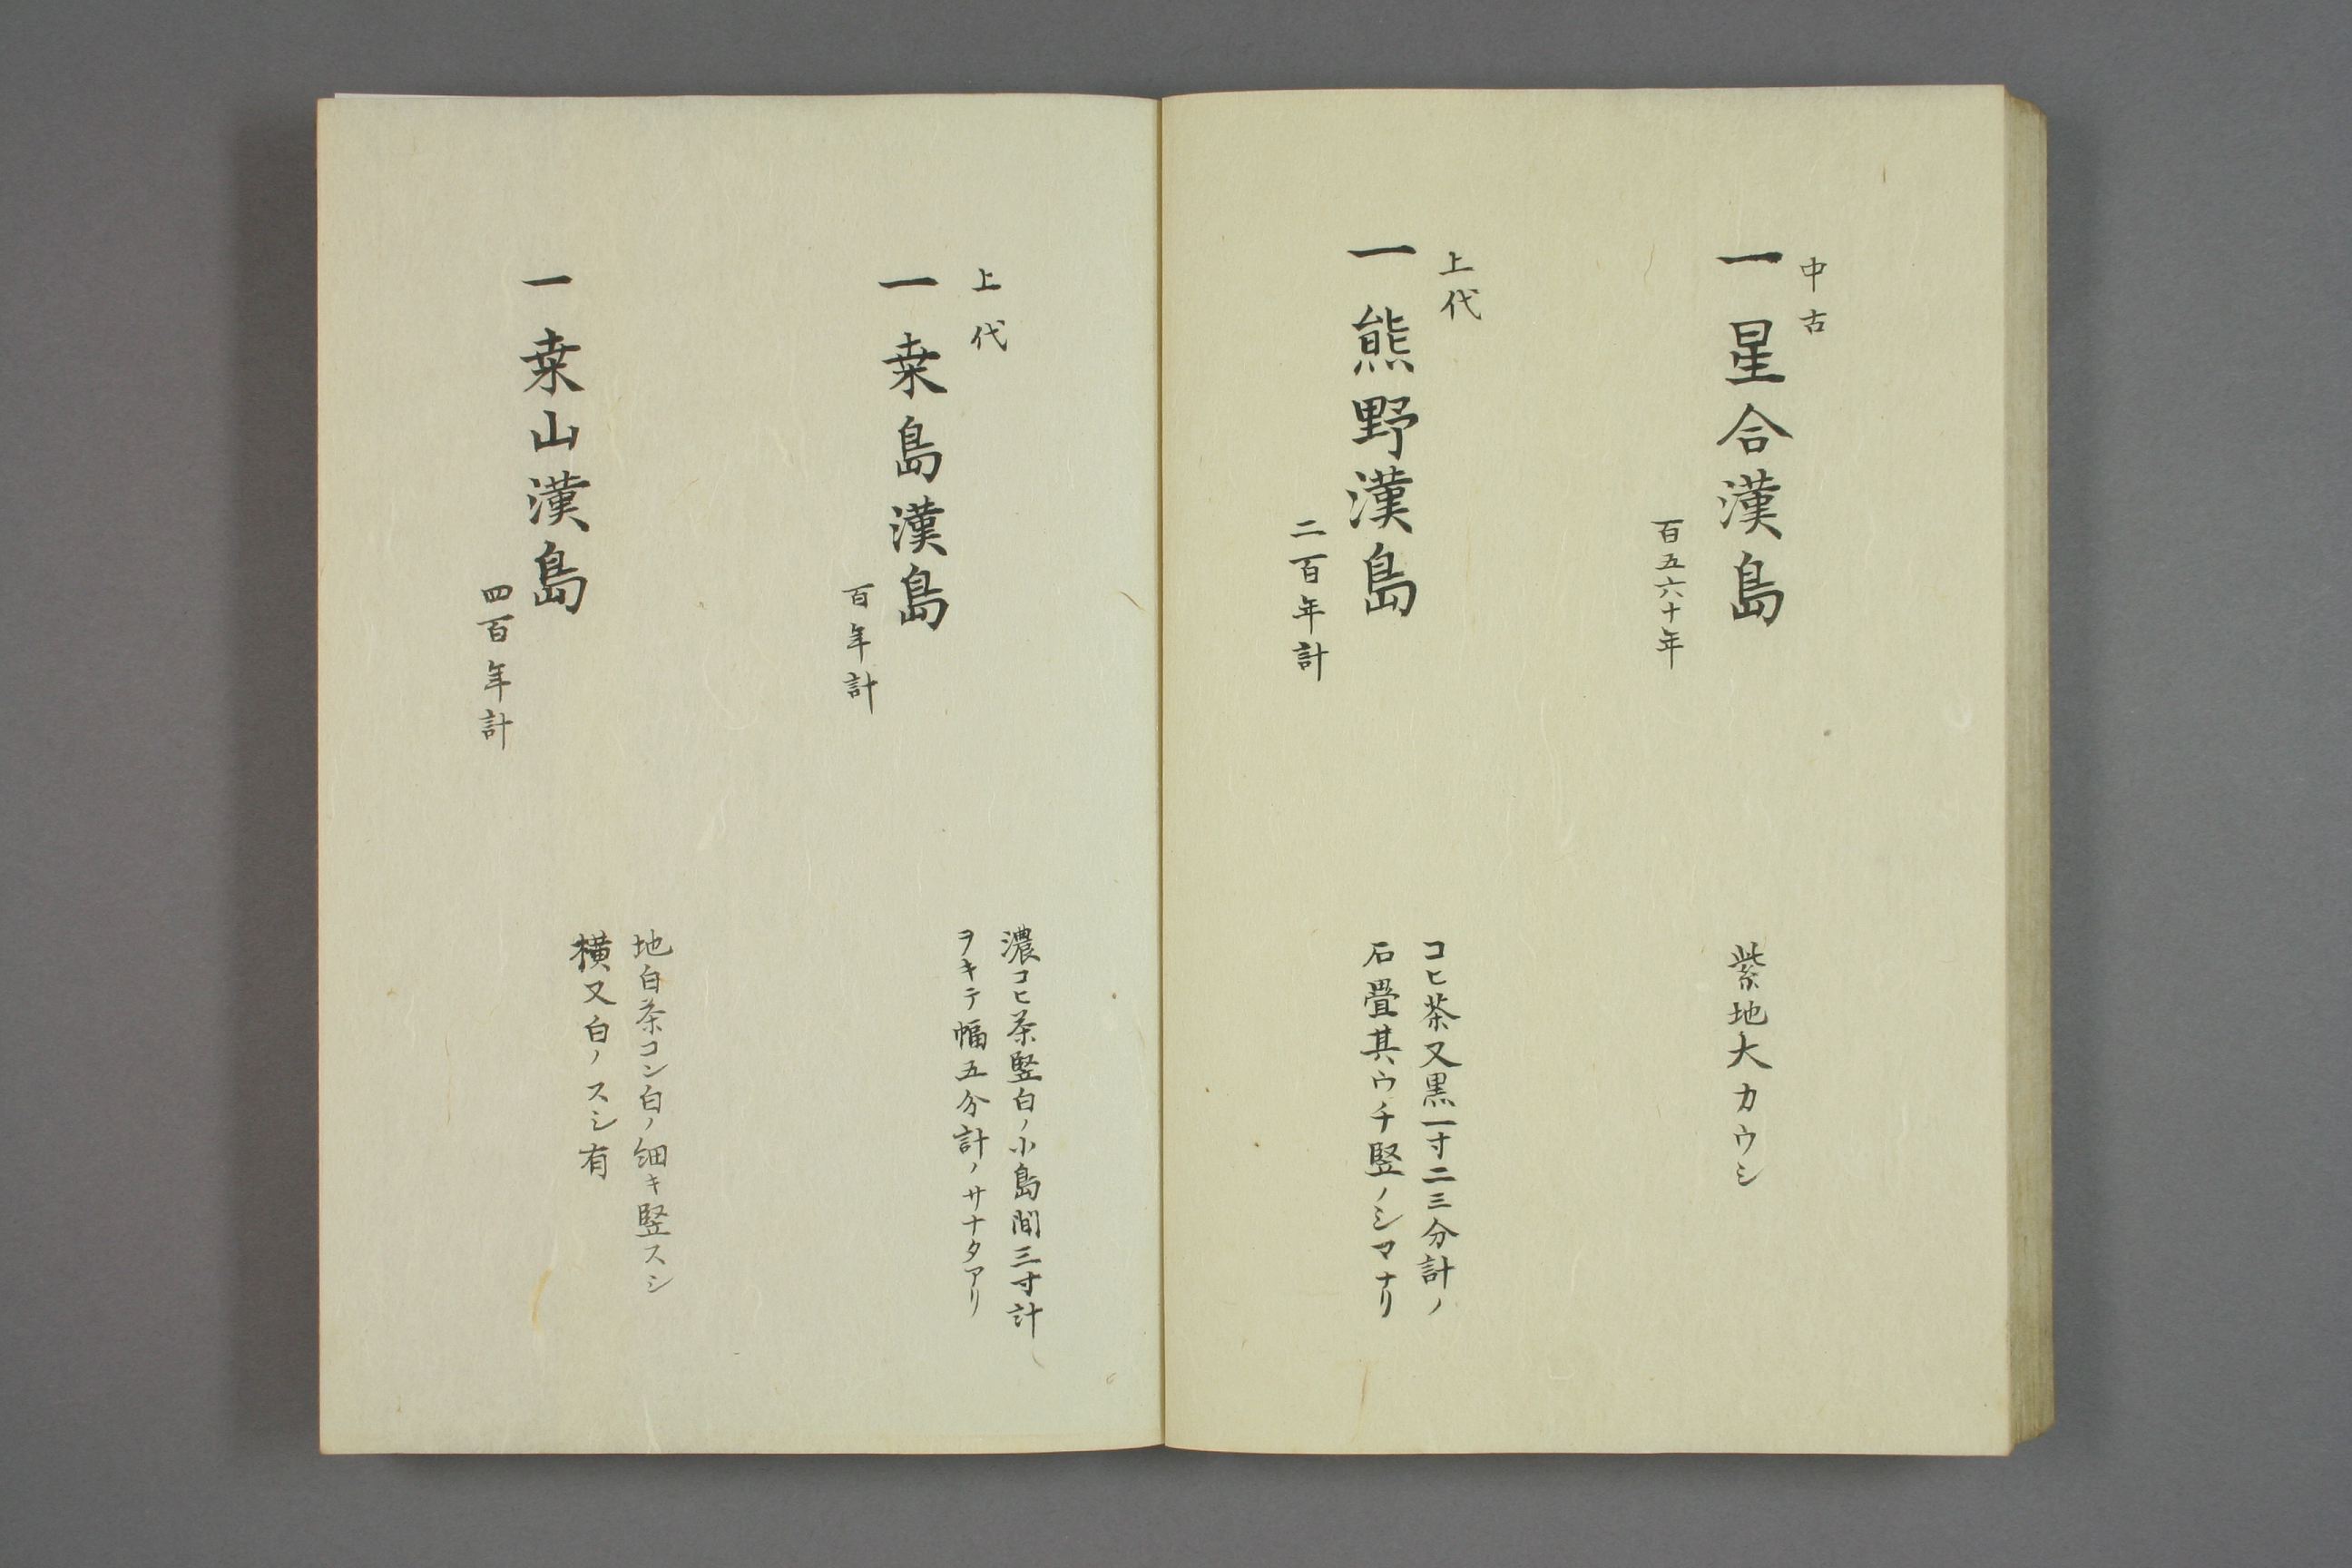 中古
一星合漢島
百五六十年
紫地大カウシ
上代
一熊野漢島
二百年計
コヒ茶又黒一寸二三分計ノ
石畳其ウチ竪ノシマナリ
上代
一桒島漢島
百年計
濃コヒ茶竪白ノ小島間三寸計
ヲキテ幅五分計ノサナタアリ
一桒山漢島
四百年計
地白茶コン白ノ細キ竪スシ
横又白ノスシ有